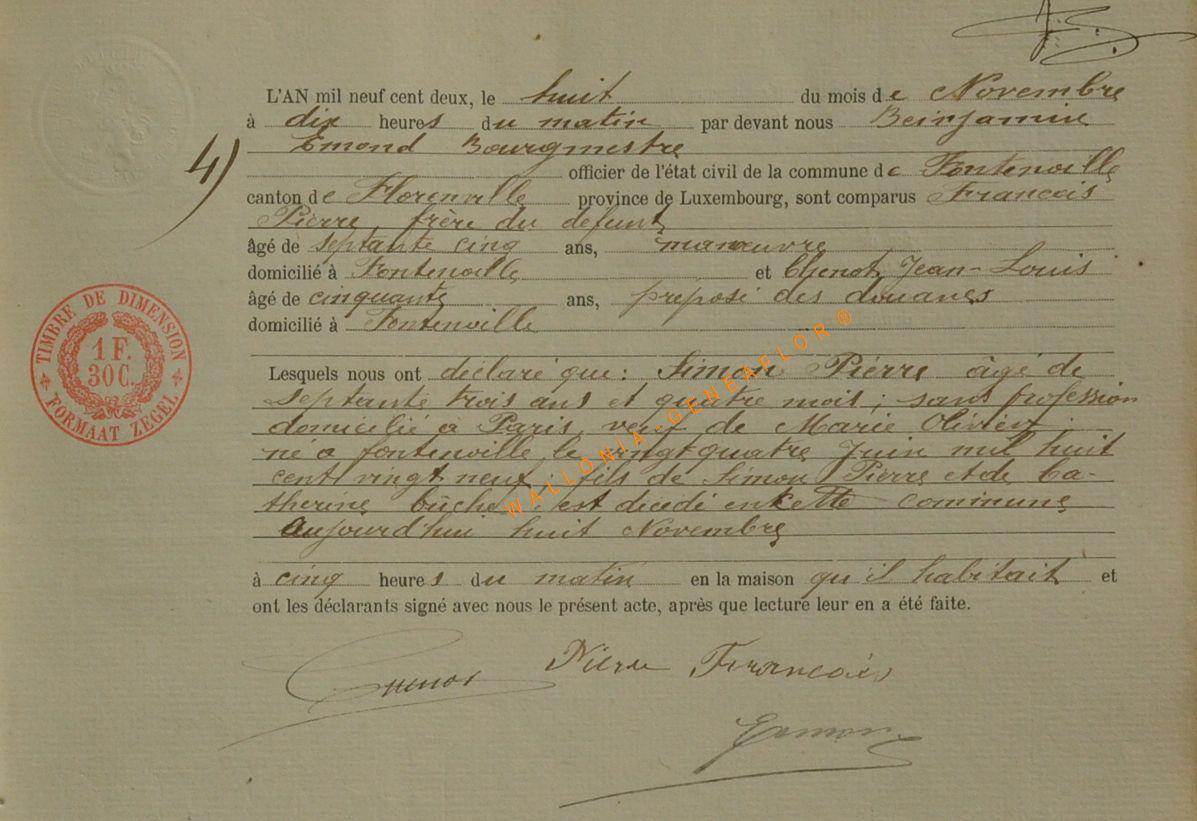 4)
L'AN mil neuf cent deux, le huit du mois de Novembre
à dix heures du matin par devant nous Beinjamin
Emond Bourgmestre
officier de l'état civil de la commune de Fontenoille
canton de Florenville province de Luxembourg, sont comparus François
Pierre, frère du défunt
âgé de septante cinq ans, manœuvre
domicilié à Fontenoille et Chenot Jean-Louis
âgé de cinquante ans, préposé des douanes
domicilié à Fontenoille
TIMBRE DE DIMENSION
1 F.
30 C.
FORMAAT ZEGEL
Lesquels nous ont déclaré que: Simon Pierre âgé de
septante trois ans et quatre mois; sans profession
domicilié à Paris, veuf de Marie Olivier,
né à fontenoille, le vingt quatre Juin mil huit
cent vingt neuf, fils de Simon Pierre et de Ca-
therine est décédé en cette commune
aujourd'hui huit Novembre
à cinq heures du matin en la maison qu'il habitait et
ont les déclarants signé avec nous le présent acte, après que lecture leur en a été faite.
Pierre François
WALLONIA-GENEAFLOR®